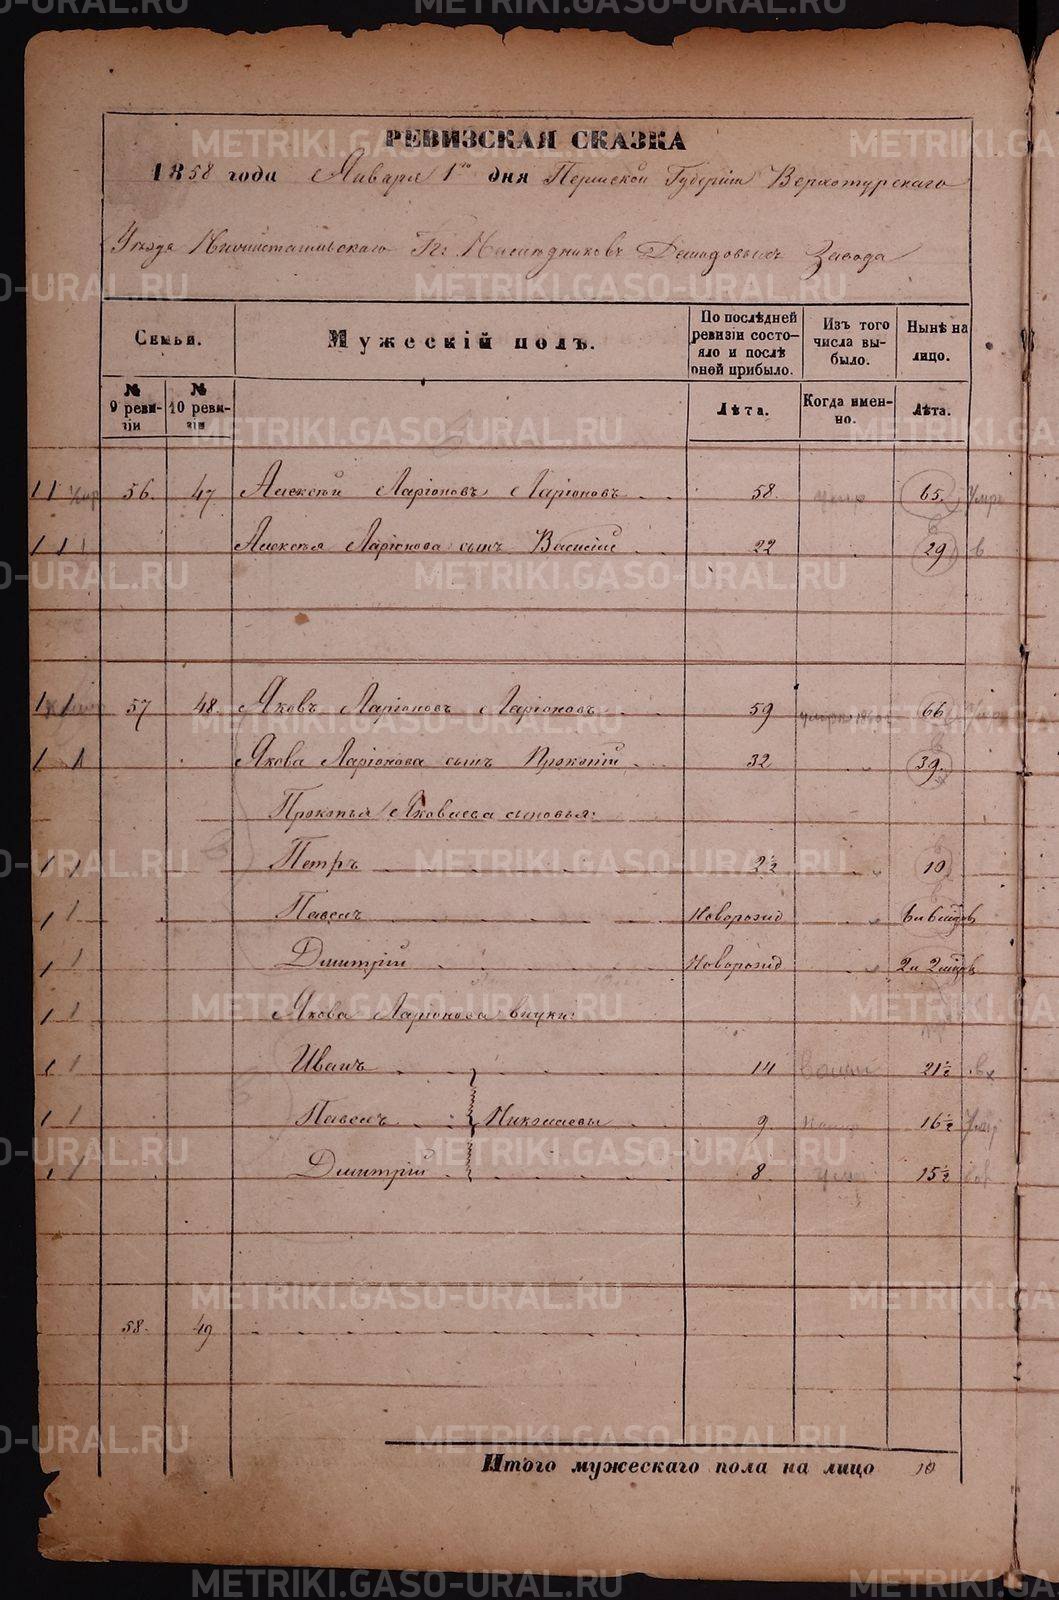 РЕВИЗСКАЯ СКАЗКА
1858 года Января 1го дня Пермской Губерніи Верхотурскаго
Уѣзда Нижнетагильскаго Гг. Наслѣдниковъ Демидовыхъ Завода
Семьи.
Мужескій полъ.
По послѣдней ревизіи состояло и послѣ оной прибыло.
Изъ того числа выбыло.
Нынѣ на лицо.
№ 9 ревизіи
№ 10 ревизіи
Лѣта.
Когда именно.
Лѣта.
56. 47 Алексѣй Ларіоновъ Ларіоновъ 58. 65. Умръ
Алексѣя Ларіонова сынъ Василій 22 29
57 48. Яковъ Ларіоновъ Ларіоновъ 59 66
Якова Ларіонова сынъ Прокопій 32 39.
Прокопья Яковлева сыновья:
Петръ 2½ 10
Павелъ Новорожд
Дмитрій Новорожд
Якова Ларіонова внуки:
Иванъ 14 21½
Павелъ Николаевы 9 16½
Дмитрій 8 15½
58. 49
Итого мужескаго пола на лицо 10
METRIKI.GASO-URAL.RU